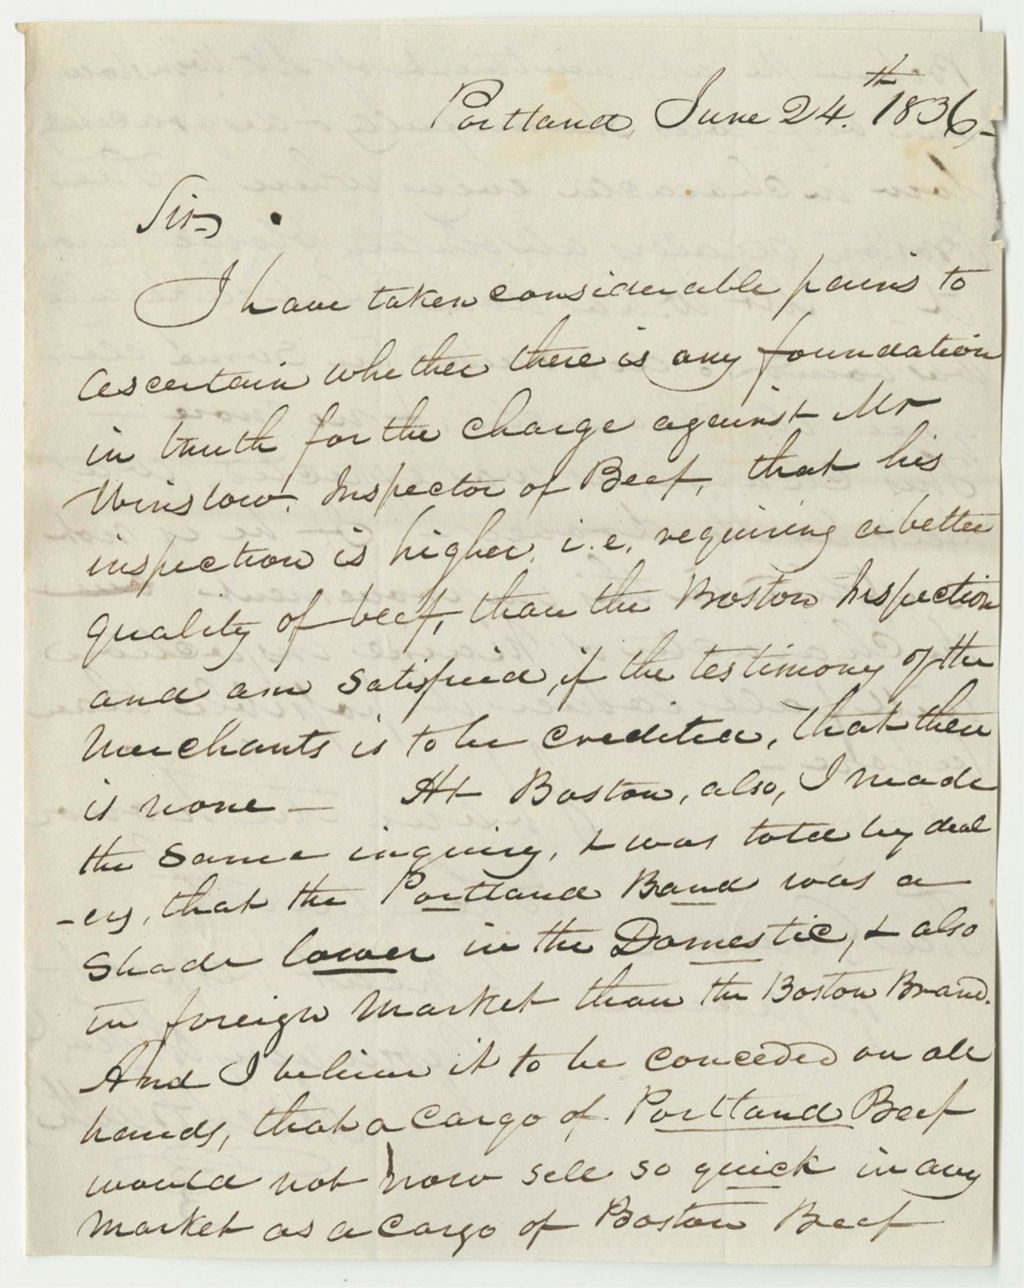 Portland, June 24.th 1836,-
Sir,
I have taken considerable pains to
ascertain whether there is any foundation
in truth for the charge against Mr
Winslow, Inspector of Beef, that his
inspection is higher, i.e. requiring a better
quality of beef, than the Boston Inspection
and am satisfied, if the testimony of the
Merchants is to be credited, that there
is none — At Boston, also, I made
the same inquiry, & was told by deal
-ers, that the Portland Band was a
shade lower in the Domestic, & also
in foreign market than the Boston Brand.
And I believe it to be conceded on all
hands, that a cargo of Portland Beef
would not now sell so quick in any
market as a cargo of Boston Beef